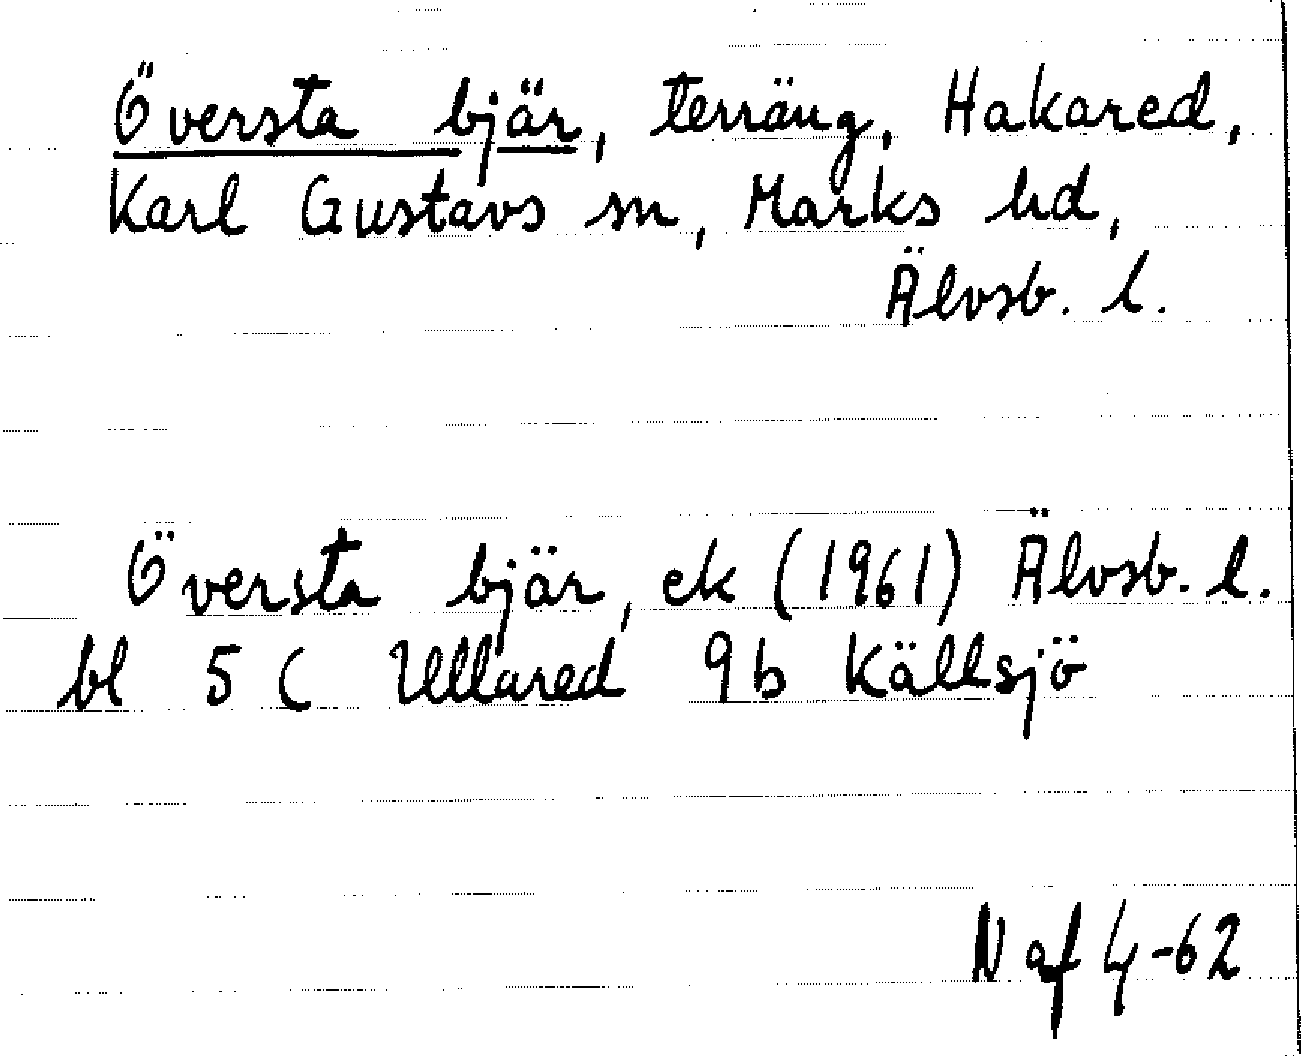 Översta bjär, terräng, Hakared,
Karl Gustavs sn, Marks hd,
Älvsb. l.
Översta bjär, ek (1961) Älvsb. l.
bl 5 C Ullared 9b Källsjö
N af 4-62